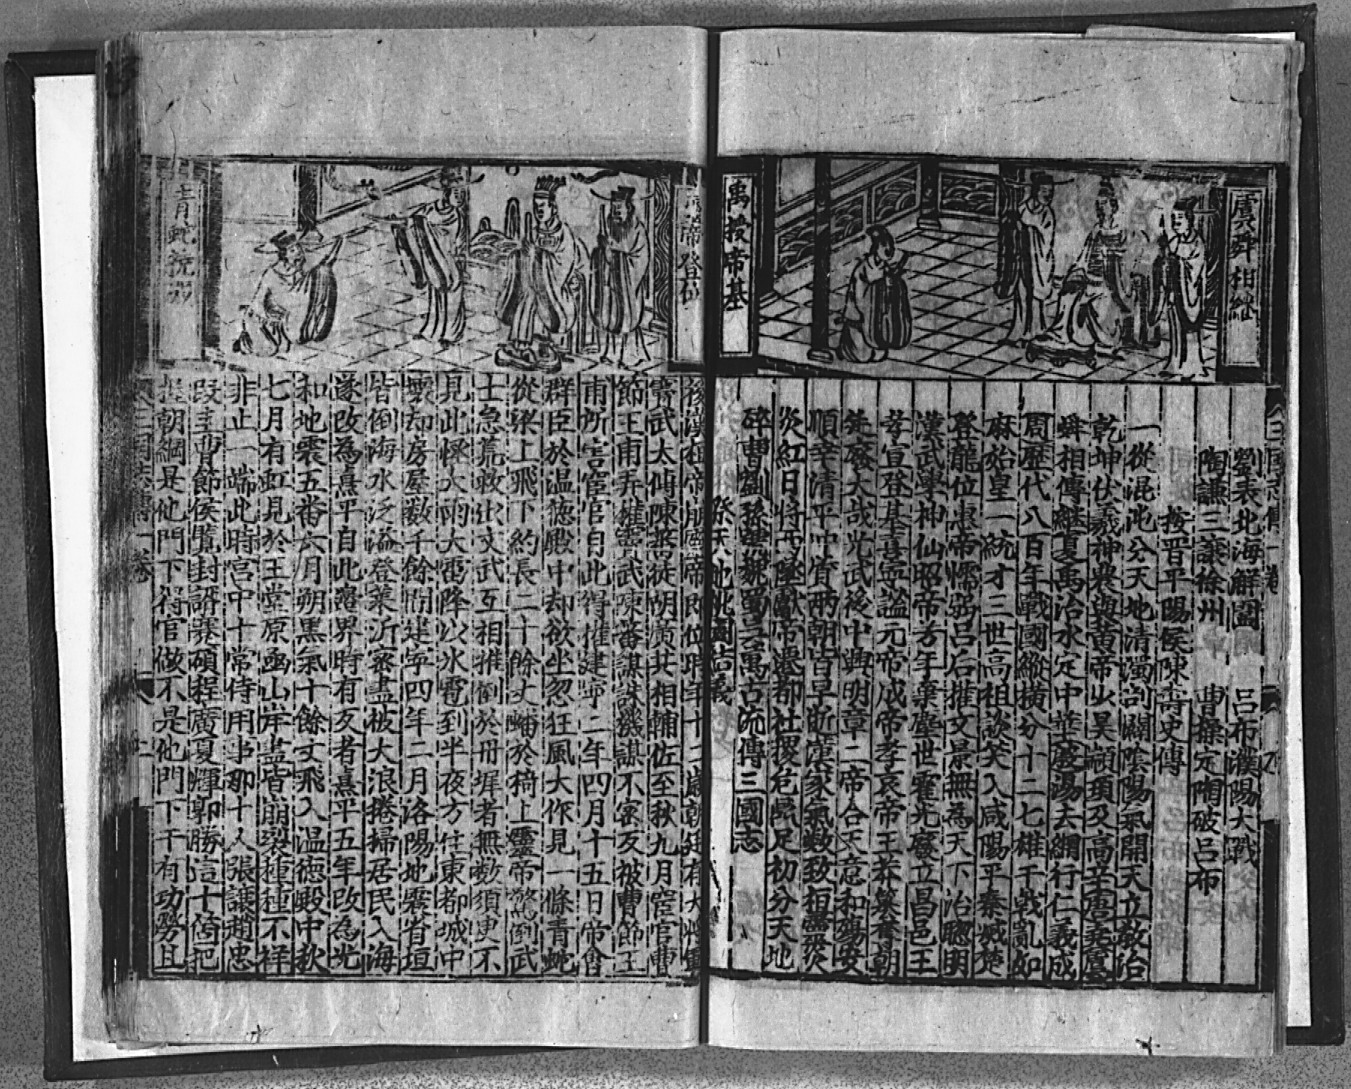 虞舜相繼
禹授帝基
劉表北海解圍 呂布濮陽大戰
陶謙三讓徐州 曹操定陶破呂布
按晋平陽侯陳壽史傳
一從混沌分天地清濁剖闢陰陽氣開天立教治
乾坤伏羲神農與黃帝少昊顓頊及高辛唐堯虞
舜相傳繼夏禹治水定中華殷湯去網行仁義成
周歷代八百年戰國縱橫分十二七雄干戈亂如
麻始皇一統才三世高祖談笑入咸陽平秦滅楚
登龍位惠帝懦弱呂后摧文景無為天下治聰明
漢武學神仙昭帝芳年棄塵世霍光廢立昌邑王
孝宣登基喜孟謚元帝成帝孝哀帝王莽篡奪朝
廢大哉光武後中興明章二帝合天意和殤安
順幸清平冲質兩朝皆早逝漢家氣数致桓靈炎
炎紅日將西墜献帝遷都社稷危鼎足初分天地
碎曹劉孫號魏蜀吳萬古流傳三國志
祭天地桃園結義
帝登位
青蛇
後漢桓帝崩靈帝即位時年十二歲朝廷有大將軍
竇武太傅陳蕃司徒胡廣共相輔佐至秋九月宦官曹
節王甫弄權竇武陳蕃謀誅機謀不密反被曹節王
甫所害宦官自此得權建寧二年四月十五日帝會
群臣於温德殿中却欲坐忽狂風大作見一條青蛇
從梁上飛下約長二十餘丈蟠於椅上靈帝驚倒武
士急慌救出文武互相推倒於丹墀者無数須臾不
見此怪大雨大雷降以氷雹到半夜方住東都城中
壞却房屋数千餘間建寧四年二月洛陽地震省垣
皆倒海水泛溢登萊沂密盡被大浪捲掃居民入海
遂改為熹平自此邊界時有反者熹平五年改為光
和地震五畨六月朔黑氣十餘丈飛入温德殿中秋
七月有虹見於玉堂原函山岸盡皆崩裂種種不祥
非止一端此時宮中十常侍用事那十人張讓趙忠
段珪曹節侯覽封諝蹇碩程曠夏惲郭勝這十個把
握朝綱是他門下得官做不是他門下干有功勞且